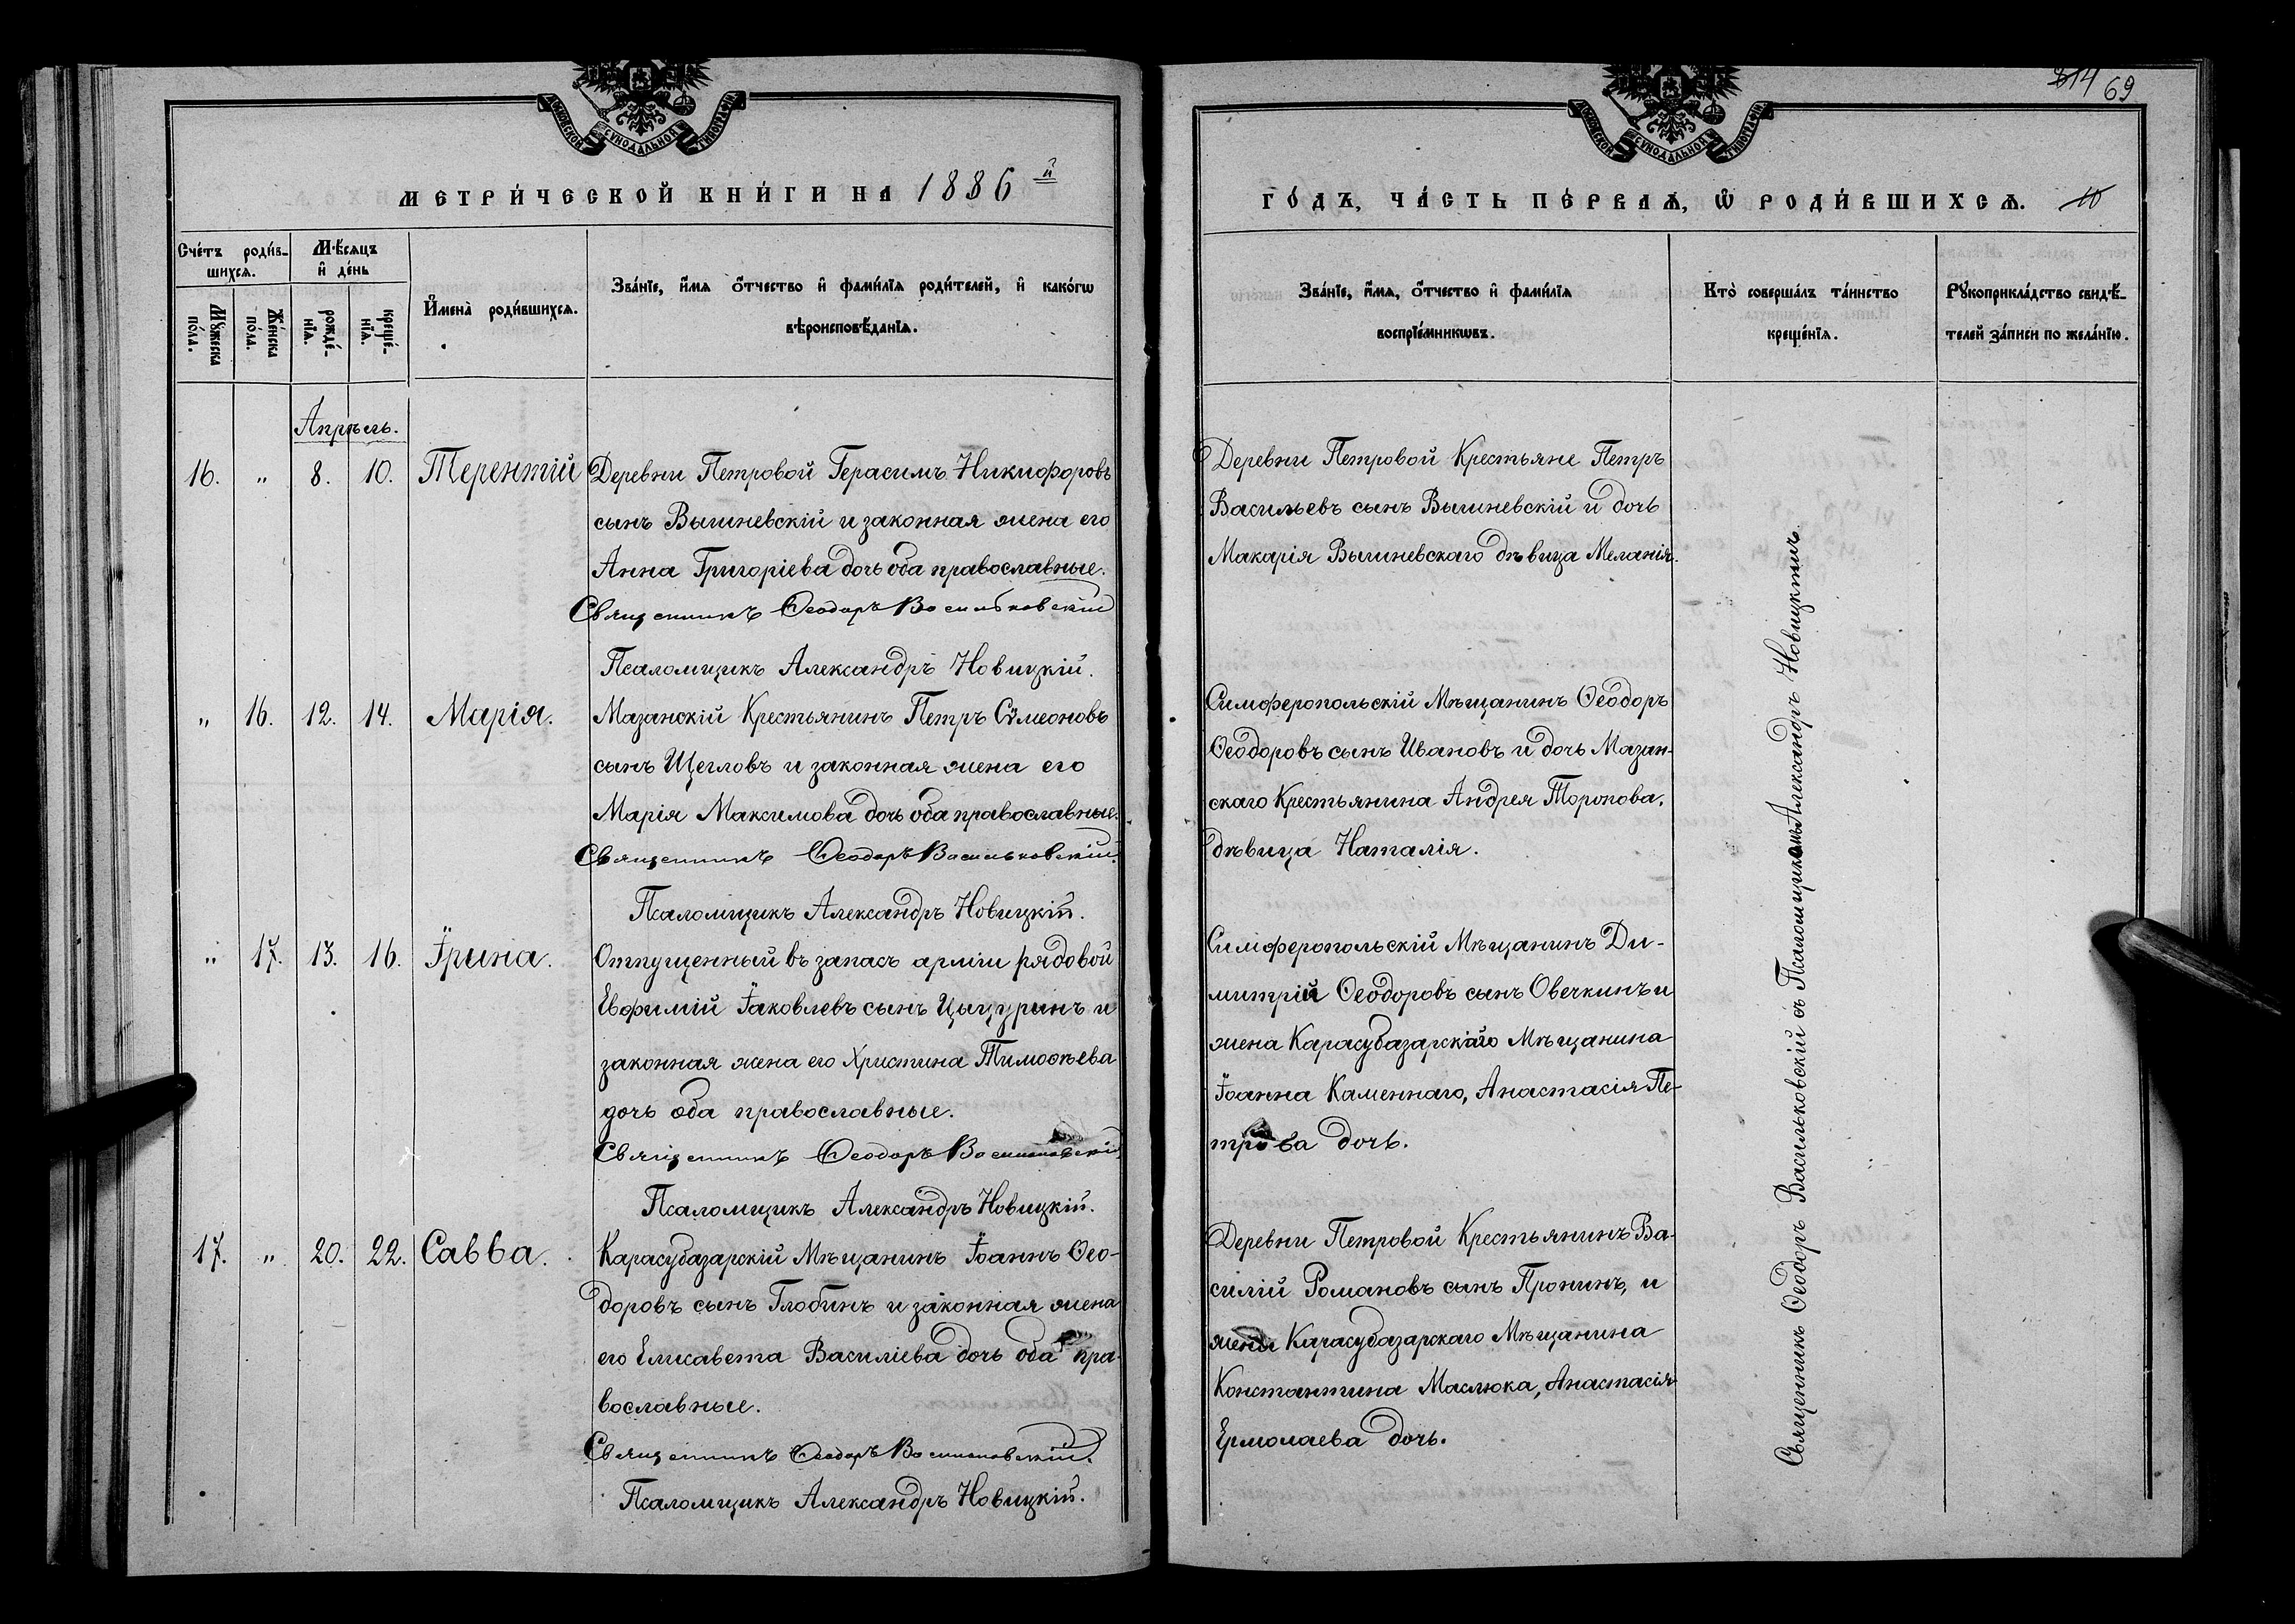 МОСКОВСКОЙ СѴНОДАЛЬНОЙ ТИПОГРАФІИ
МЕТРИ́ЧЕСКОЙ КНИ́ГИ НА 1886 й
Сче́тъ роди́в-
шихсѧ.
Мѣ́сяцъ
и҆ де́нь
Мꙋ́жеска
по́ла.
Же́нска
по́ла.
рожде́-
нїѧ.
креще́-
нїѧ.
И҆мена̀ роди́вшихсѧ.
Зва́нїе, и҆́мѧ ѻ҆́тчество и҆ фами́лїѧ роди́телей, и҆ како́гѡ
вѣроисповѣ́данїѧ.
Апрѣль.
16. " 8. 10. Терентій Деревни Петровой Герасимъ Никифоровъ
сынъ Вышневскій и законная жена его
Анна Григоріева дочь оба православные.
Священникъ Ѳеодоръ Васильковскій
Псаломщикъ Александръ Новицкій.
" 16. 12. 14. Марія. Мазанскій Крестьянинъ Петръ Симеоновъ
сынъ Щегловъ и законная жена его
Марія Максимова дочь оба православные.
Священникъ Ѳеодоръ Васильковскій.
Псаломщикъ Александръ Новицкій.
" 17. 13. 16. Ірина. Отпущенный въ запасъ арміи рядовой
Евфимій Іаковлевъ сынъ Цыцуринъ и
законная жена его Христина Тимоѳѣева
дочь оба православные.
Священникъ Ѳеодоръ Васильковскій
Псаломщикъ Александръ Новицкій.
17. " 20. 22. Савва. Карасубазарскій Мѣщанинъ Іоаннъ Ѳео-
доровъ сынъ Глобинъ и законная жена
его Елисавета Василіева дочь оба пра-
вославные.
Священникъ Ѳеодоръ Васильковскій.
Псаломщикъ Александръ Новицкій.
69
МОСКОВСКОЙ СѴНОДАЛЬНОЙ ТИПОГРАФІИ
ГО́ДЪ, ЧА́СТЬ ПЕ́РВАѦ, Ѡ҆ РОДИ́ВШИХСѦ. 10
Зва́нїе, и҆́мѧ, ѻ҆́тчество и҆ фами́лїѧ
воспрїе́мникѡвъ.
Кто̀ соверша́лъ та́инство
креще́нїѧ.
Рꙋкоприкла́дство свидѣ́-
телей за́писи по жела́нїю.
Деревни Петровой Крестьяне Петръ
Васильевъ сынъ Вышневскій и дочь
Макарія Вышневскаго дѣвица Меланія.
Симферопольскій Мѣщанинъ Ѳеодоръ
Ѳеодоровъ сынъ Ивановъ и дочь Мазан-
скаго Крестьянина Андрея Торопова,
дѣвица Наталія.
Симферопольскій Мѣщанинъ Ди-
митрій Ѳеодоровъ сынъ Овечкинъ и
жена Карасубазарскаго Мѣщанина
Іоанна Каменнаго, Анастасія Пе-
трова дочь.
Деревни Петровой Крестьянинъ Ва-
силій Романовъ сынъ Пронинъ, и
жена Карасубазарскаго Мѣщанина
Константина Маслюка, Анастасія
Ермолаева дочь.
Священникъ Ѳеодоръ Васильковскій съ Псаломщикомъ Александромъ Новицкимъ.